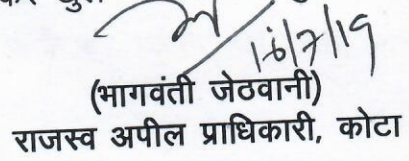 18/7/19
(भागवंती जेठवानी)
राजस्व अपील प्राधिकारी, कोटा